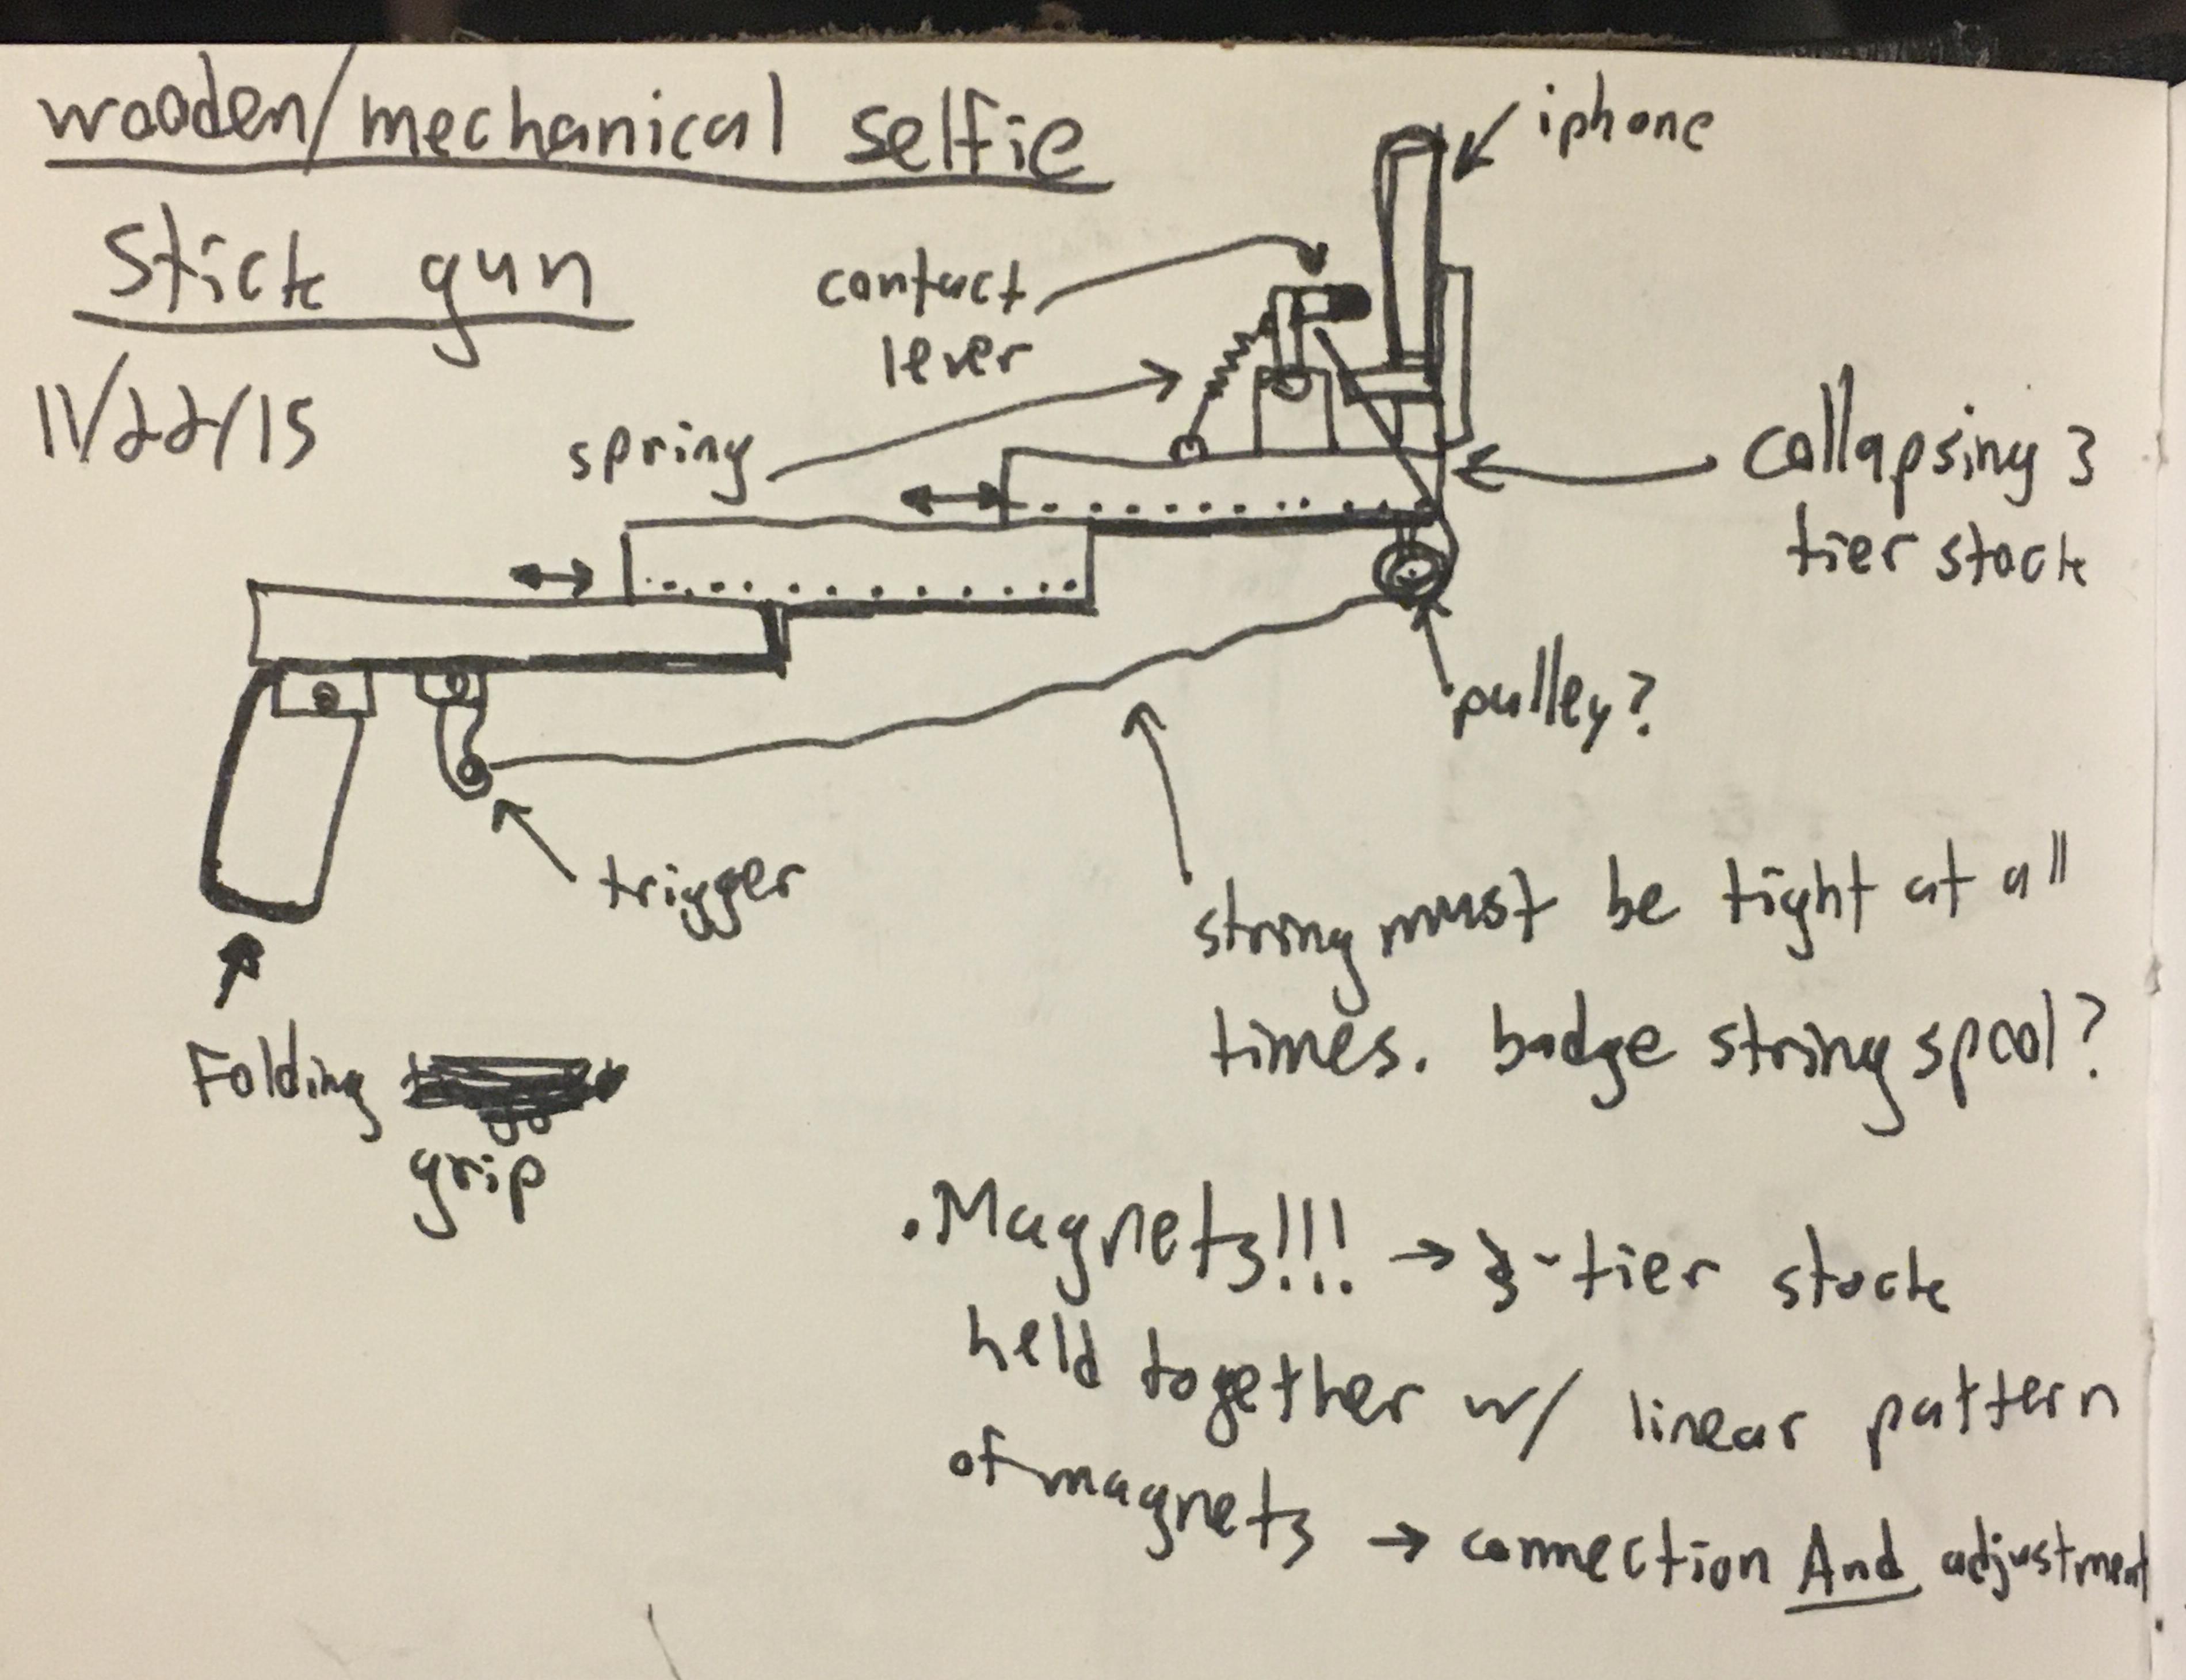 wooden/mechanical selfie
stick gun
11/22/15
iphone
contact
lever
spring
collapsing 3
tier stock
pulley?
trigger
string must be tight at all
times. badge string spool?
Folding
grip
• Magnets!!! → 3-tier stock
held together w/ linear pattern
of magnets → connection And adjustment